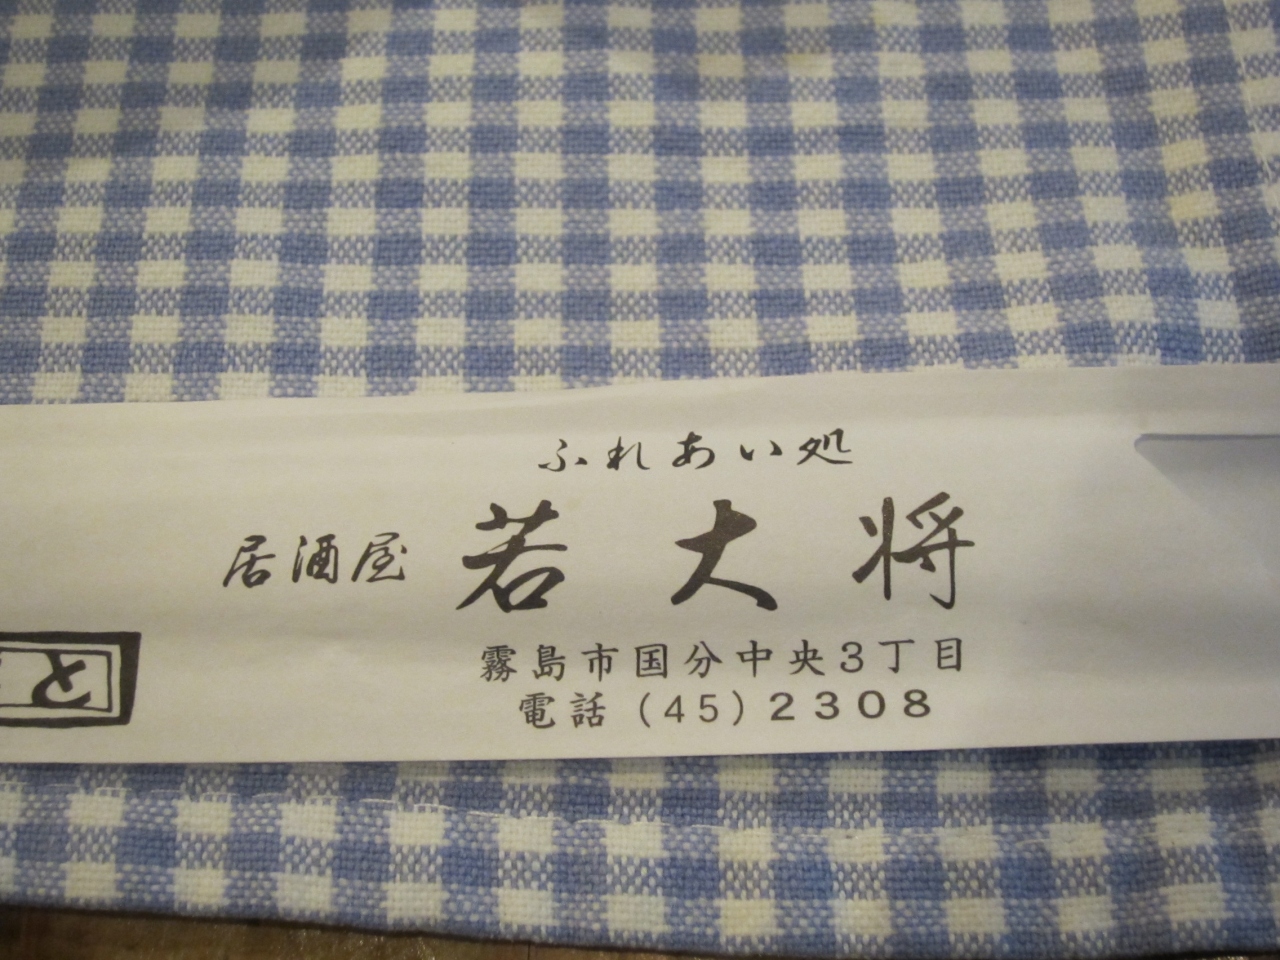 ふれあい処
居酒屋 若大将
霧島市国分中央3丁目
電話(45)2308